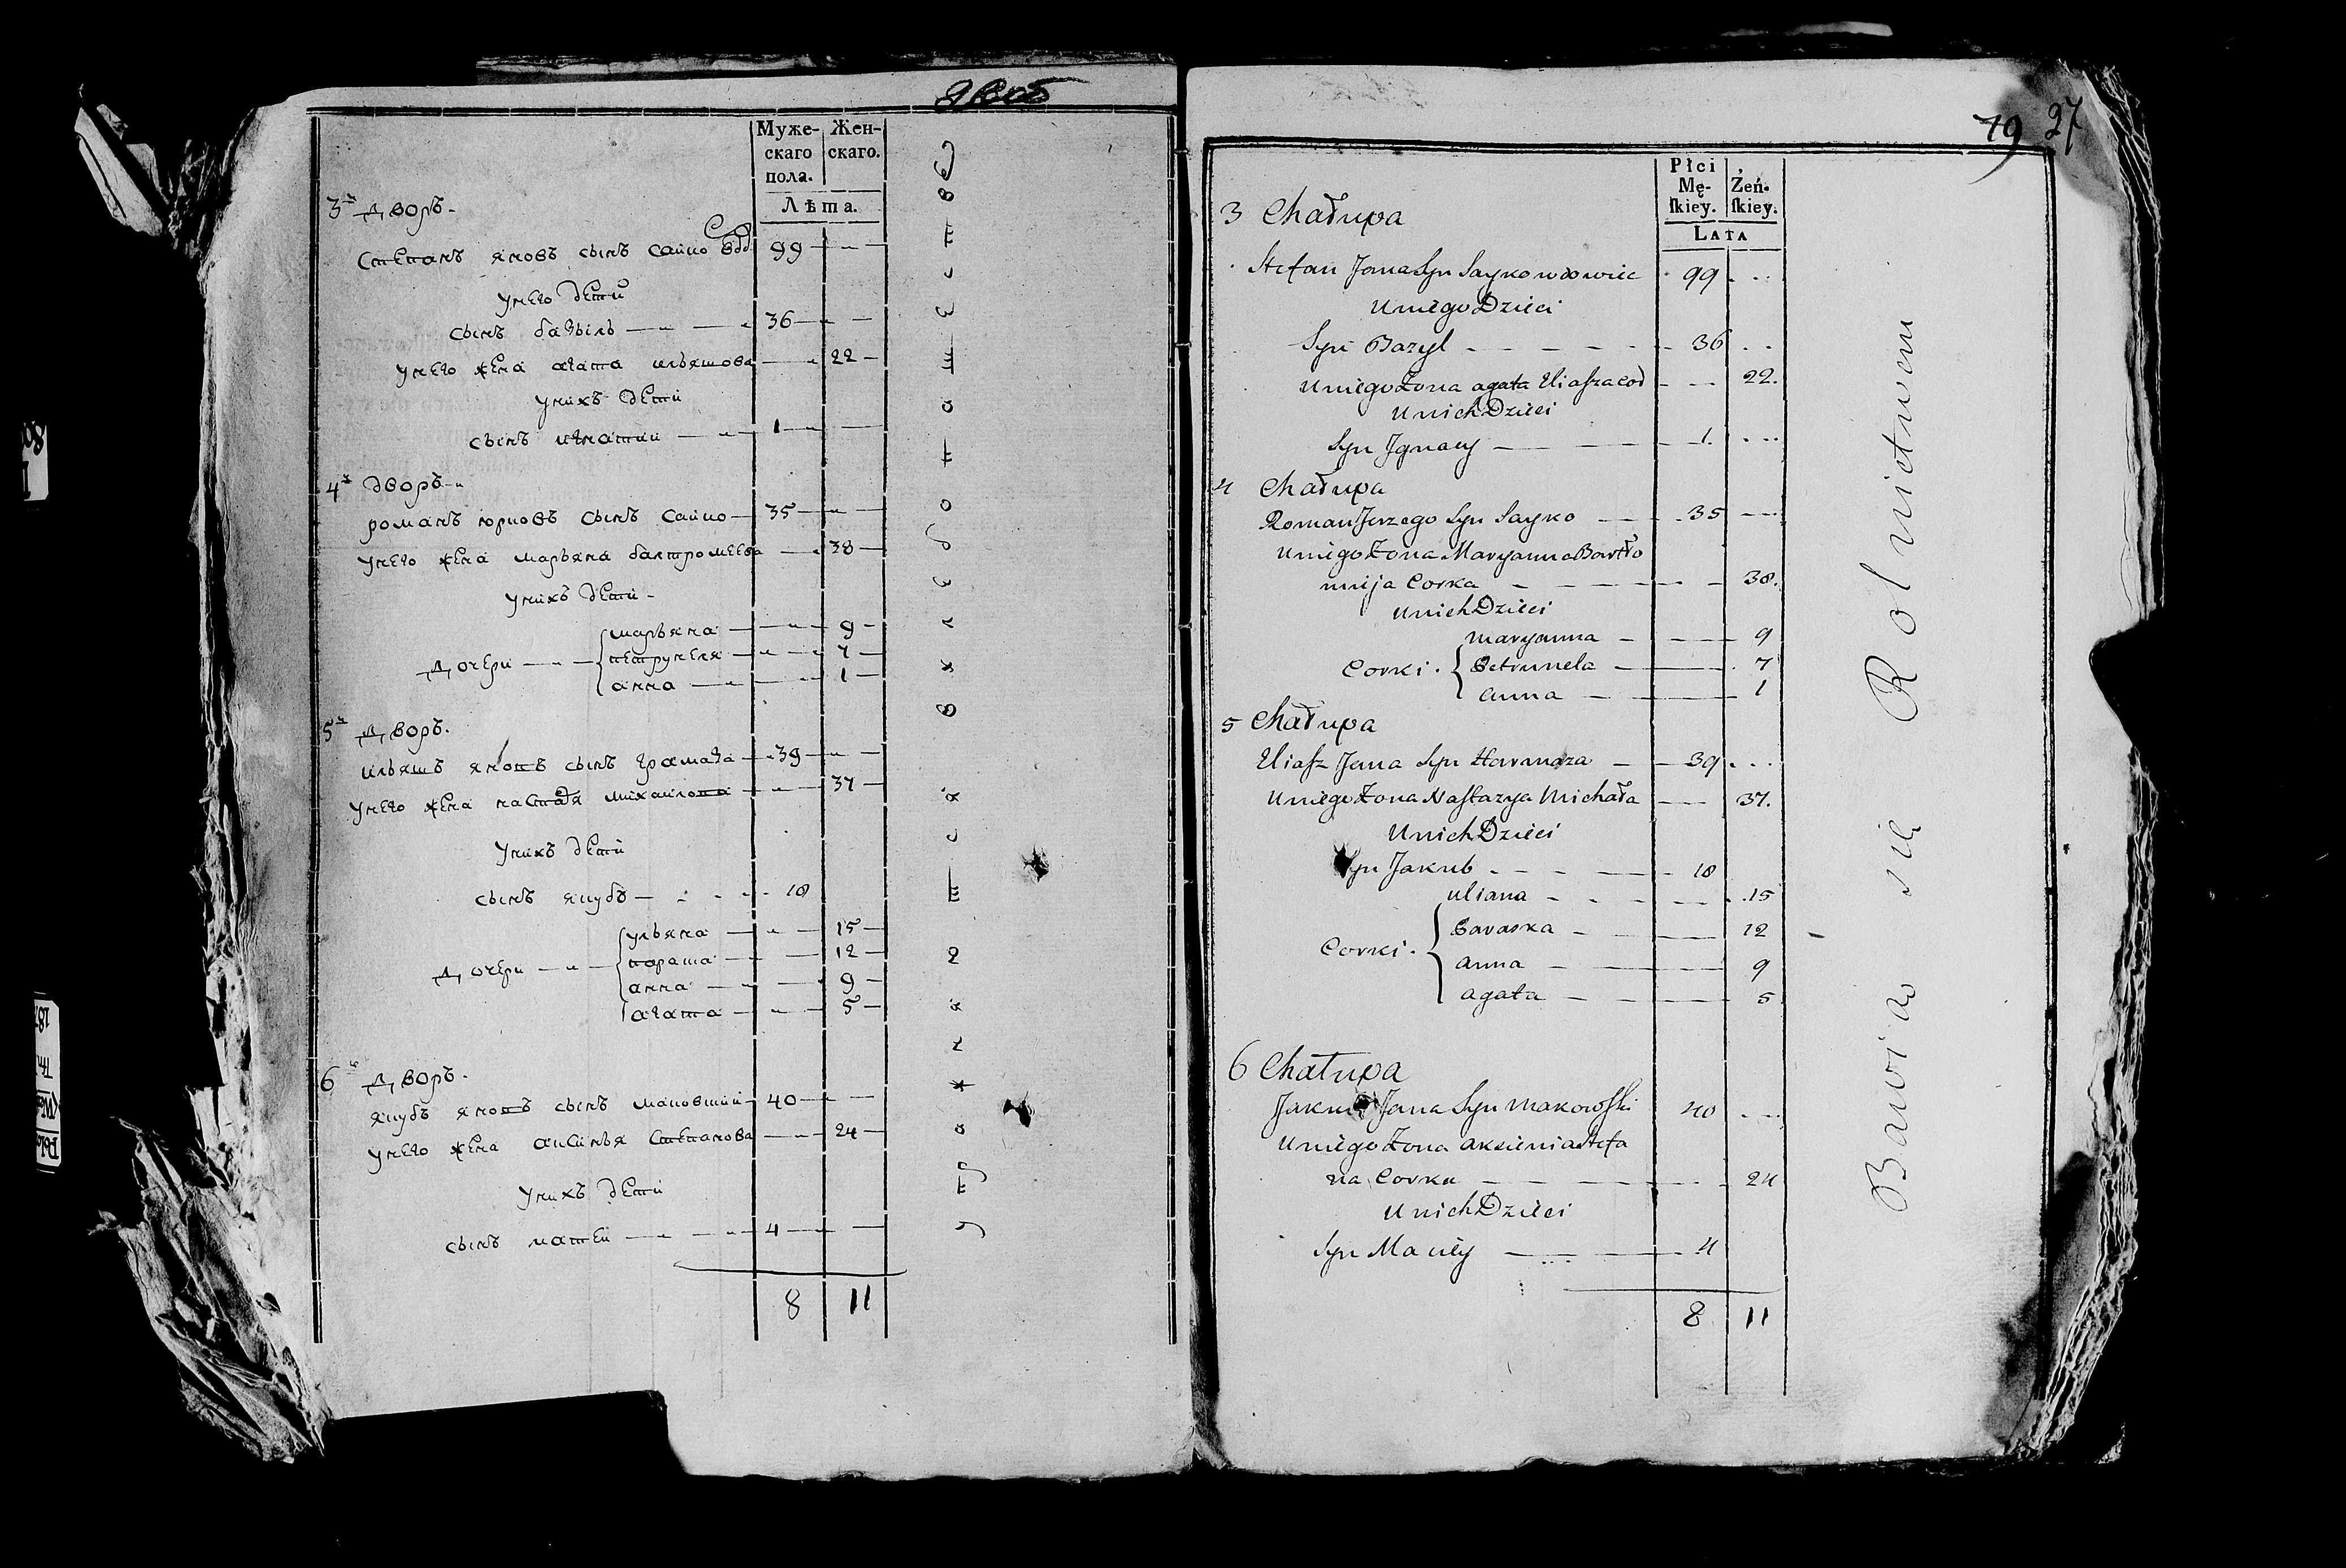 Муже-
скаго
пола.
Жен-
скаго.
Лѣта.
3й дворъ.
Степанъ яновъ сынъ сайко вдо 99
унего дети
сынъ базыль 36
унего жена агата ильяшова 22
унихъ дети
сынъ игнатий 1
4й дворъ
романъ юрковъ сынъ сайко 35
унего жена марьяна балтромеева 38
унихъ дети
марьяна 9
дочери петрунеля 7
анна 1
5й дворъ.
ильяшъ яновъ сынъ 39
унего жена настазя михайлова 37
унихъ дети
сынъ якубъ 18
ульяна 15
дочери параша 12
анна 9
агата 5
6й дворъ.
якубъ яновъ сынъ маковский 40
унего жена аксинья степанова 24
унихъ дети
сынъ матей 4
8 11
79 27
Płci
Mę-
skiey.
Żeń-
skiey.
LATA
3 Chałupa
Stefan Jana Syn Sayko wdowiec 99
Uniego Dzieci
Syn Bazyl 36
Uniego Żona agata Eliasza cod 22.
Unich Dzieci
Syn Jgnacy 1.
4 Chałupa
Roman Jerzego Syn Sayko 35
Uniego Żona Maryanna Bartło
mija Corka 38.
Unich Dzieci
maryanna 9
Corki. Petrunela 7
anna 1
5 Chałupa
Eliasz Jana Syn 39
Uniego Żona Nastazya Michała 37.
Unich Dzieci
Syn Jakub 18
uliana 15
Corki. Paraska 12
anna 9
agata 5
6 Chałupa
Jakub Jana Syn makowski 40
Uniego Żona aksienia Stefa
na Corka 24
Unich Dzieci
Syn Maciey 4
8 11
Bawią się Rolnictwem